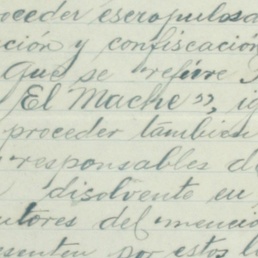 roceder escropulosa
ción y confiscación
que se refiere
El Mache", ig
proceder tambien
responsables de
disolvente en
utores del mencio
esenten por estos l